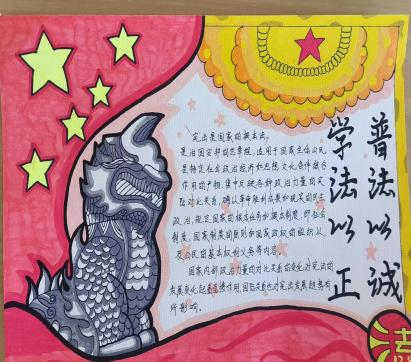 普法以诚
学法以正
宪法是国家的根本法，
是治国安邦的总章程，适用于国家全体公民
是特定社会政治经济和思想文化条件综合
作用的产物，集中反映各种政治力量的实
际对比关系，确认革命胜利成果和现实的民主
政治，规定国家的根本任务和根本制度，即社会
制度、国家制度的原则和国家政权的组织以
及公民的基本权利义务等内容。
国家内部政治力量的对比关系的变化对宪法的
发展变化起着直接作用，国际关系也对宪法发展趋势有
所影响。
法